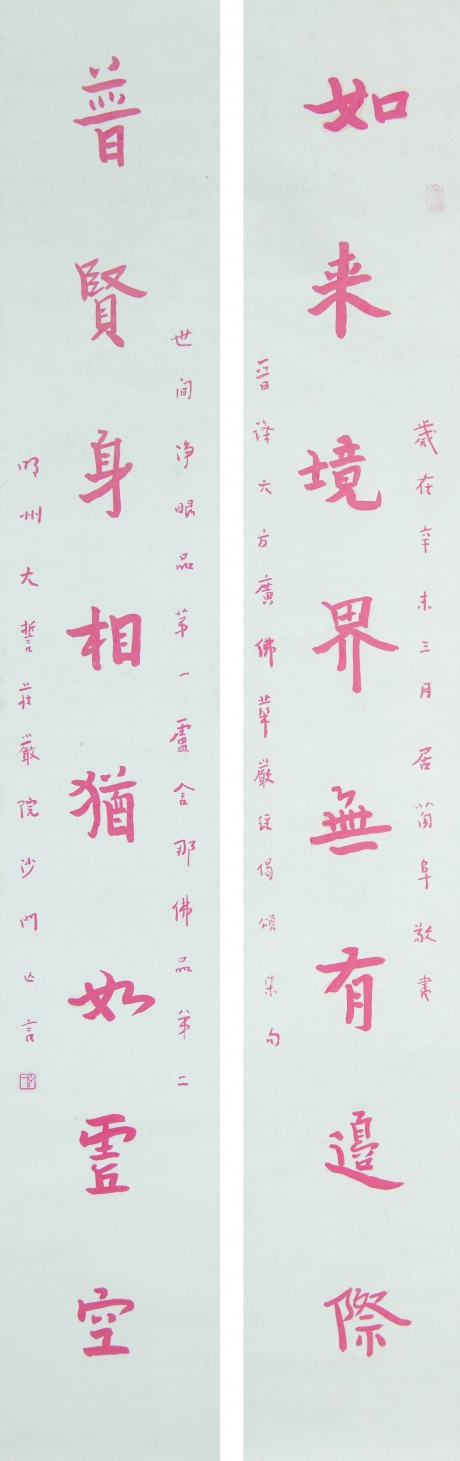 如来境界無有邊際
歲在辛未三月居筒阜敬書
晉譯大方廣佛華嚴經偈頌集句
普賢身相猶如虛空
世间淨眼品第一盧舍那佛品第二
明州大誓莊嚴院沙門亡言